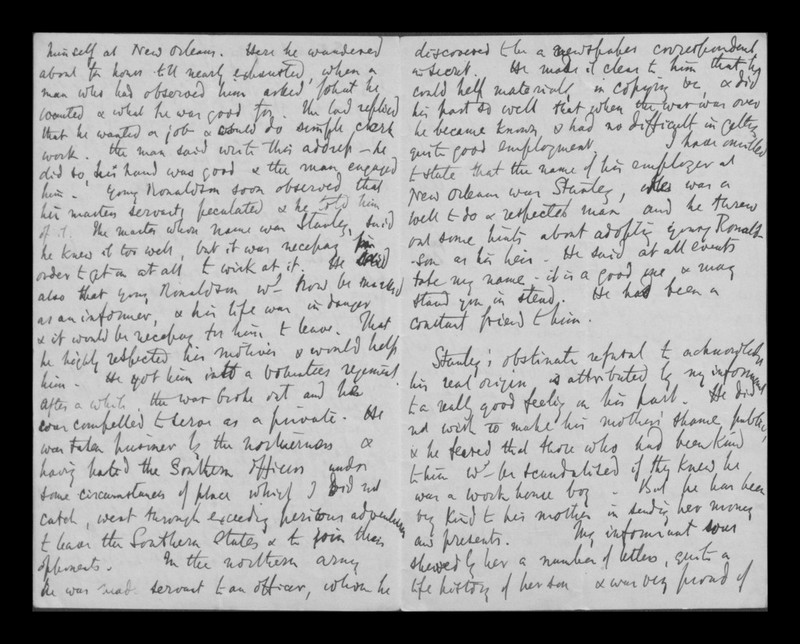 himself at New Orleans. Here he wandered
about for hours till nearly exhausted, when a
man who had observed him asked what he
wanted & what he was good for. The lad replied
that he wanted a job & could do simple clerk
work. The man said write this address – he
did so, his hand was good & the man engaged
him. Young Ronaldson soon observed that
his masters servants peculated & he told him
of it. The master whose name was Stanley, said
he knew it too well, but it was necessary in
order to get on at all to wink at it. He said
also that young Ronaldson wd now be marked
as an informer, & his life was in danger
& it would be necessary for him to leave. That
he highly respected his motives & would help
him. He got him into a volunteer regiment.
After a while the war broke out and he
was compelled to serve as a private. He
was taken prisoner by the northerners &
having hated the Southern officers under
some circumstances of place which I did not
catch, went through exceeding perilous adventures
to leave the Southern States & to join their
opponents. In the northern army
he was made servant to an officer, whom he
discovered to be a newspaper correspondent
in secret. He made it clear to him that he
could help materially in copying &c, & did
his part so well that when the war was over
he became known & had no difficulty in getting
quite good employment I have omitted
to state that the name of his employer at
New Orleans was Stanley, was a
well to do & respected man and he threw
out some hints about adopting young Ronald-
-son as his heir. He said at all events
take my name – it is a good one & may
stand you in stead. He had been a
constant friend to him.
Stanley's obstinate refusal to acknowledge
his real origin is attributed by my informant
to a really good feeling on his part. He did
not wish to make his mother's shame public,
& he feared that those who had been kind
to him wd be scandalized if they knew he
was a work house boy – But he has been
very kind to his mother in sending her money
and presents. My informant was
showed by her a number of letters, quite a
life history of her son & was very proud of